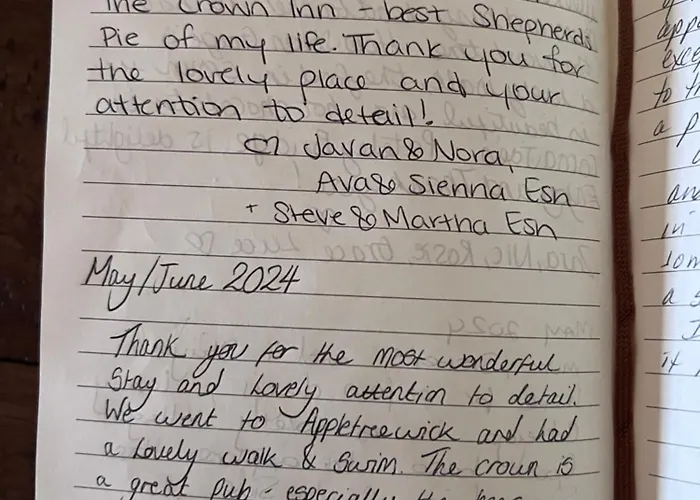 The Crown Inn - best Shepherds
Pie of my life. Thank you for
the lovely place and your
attention to detail!
Javan & Nora,
Ava & Sienna Esh
+ Steve & Martha Esh
May/June 2024
Thank you for the most wonderful
Stay and Lovely attention to detail.
We went to Appletreewick and had
a Lovely walk & Swim. The crown is
a great pub - especially the
appe
exce
to th
a p
and
in
som
a s
I
it